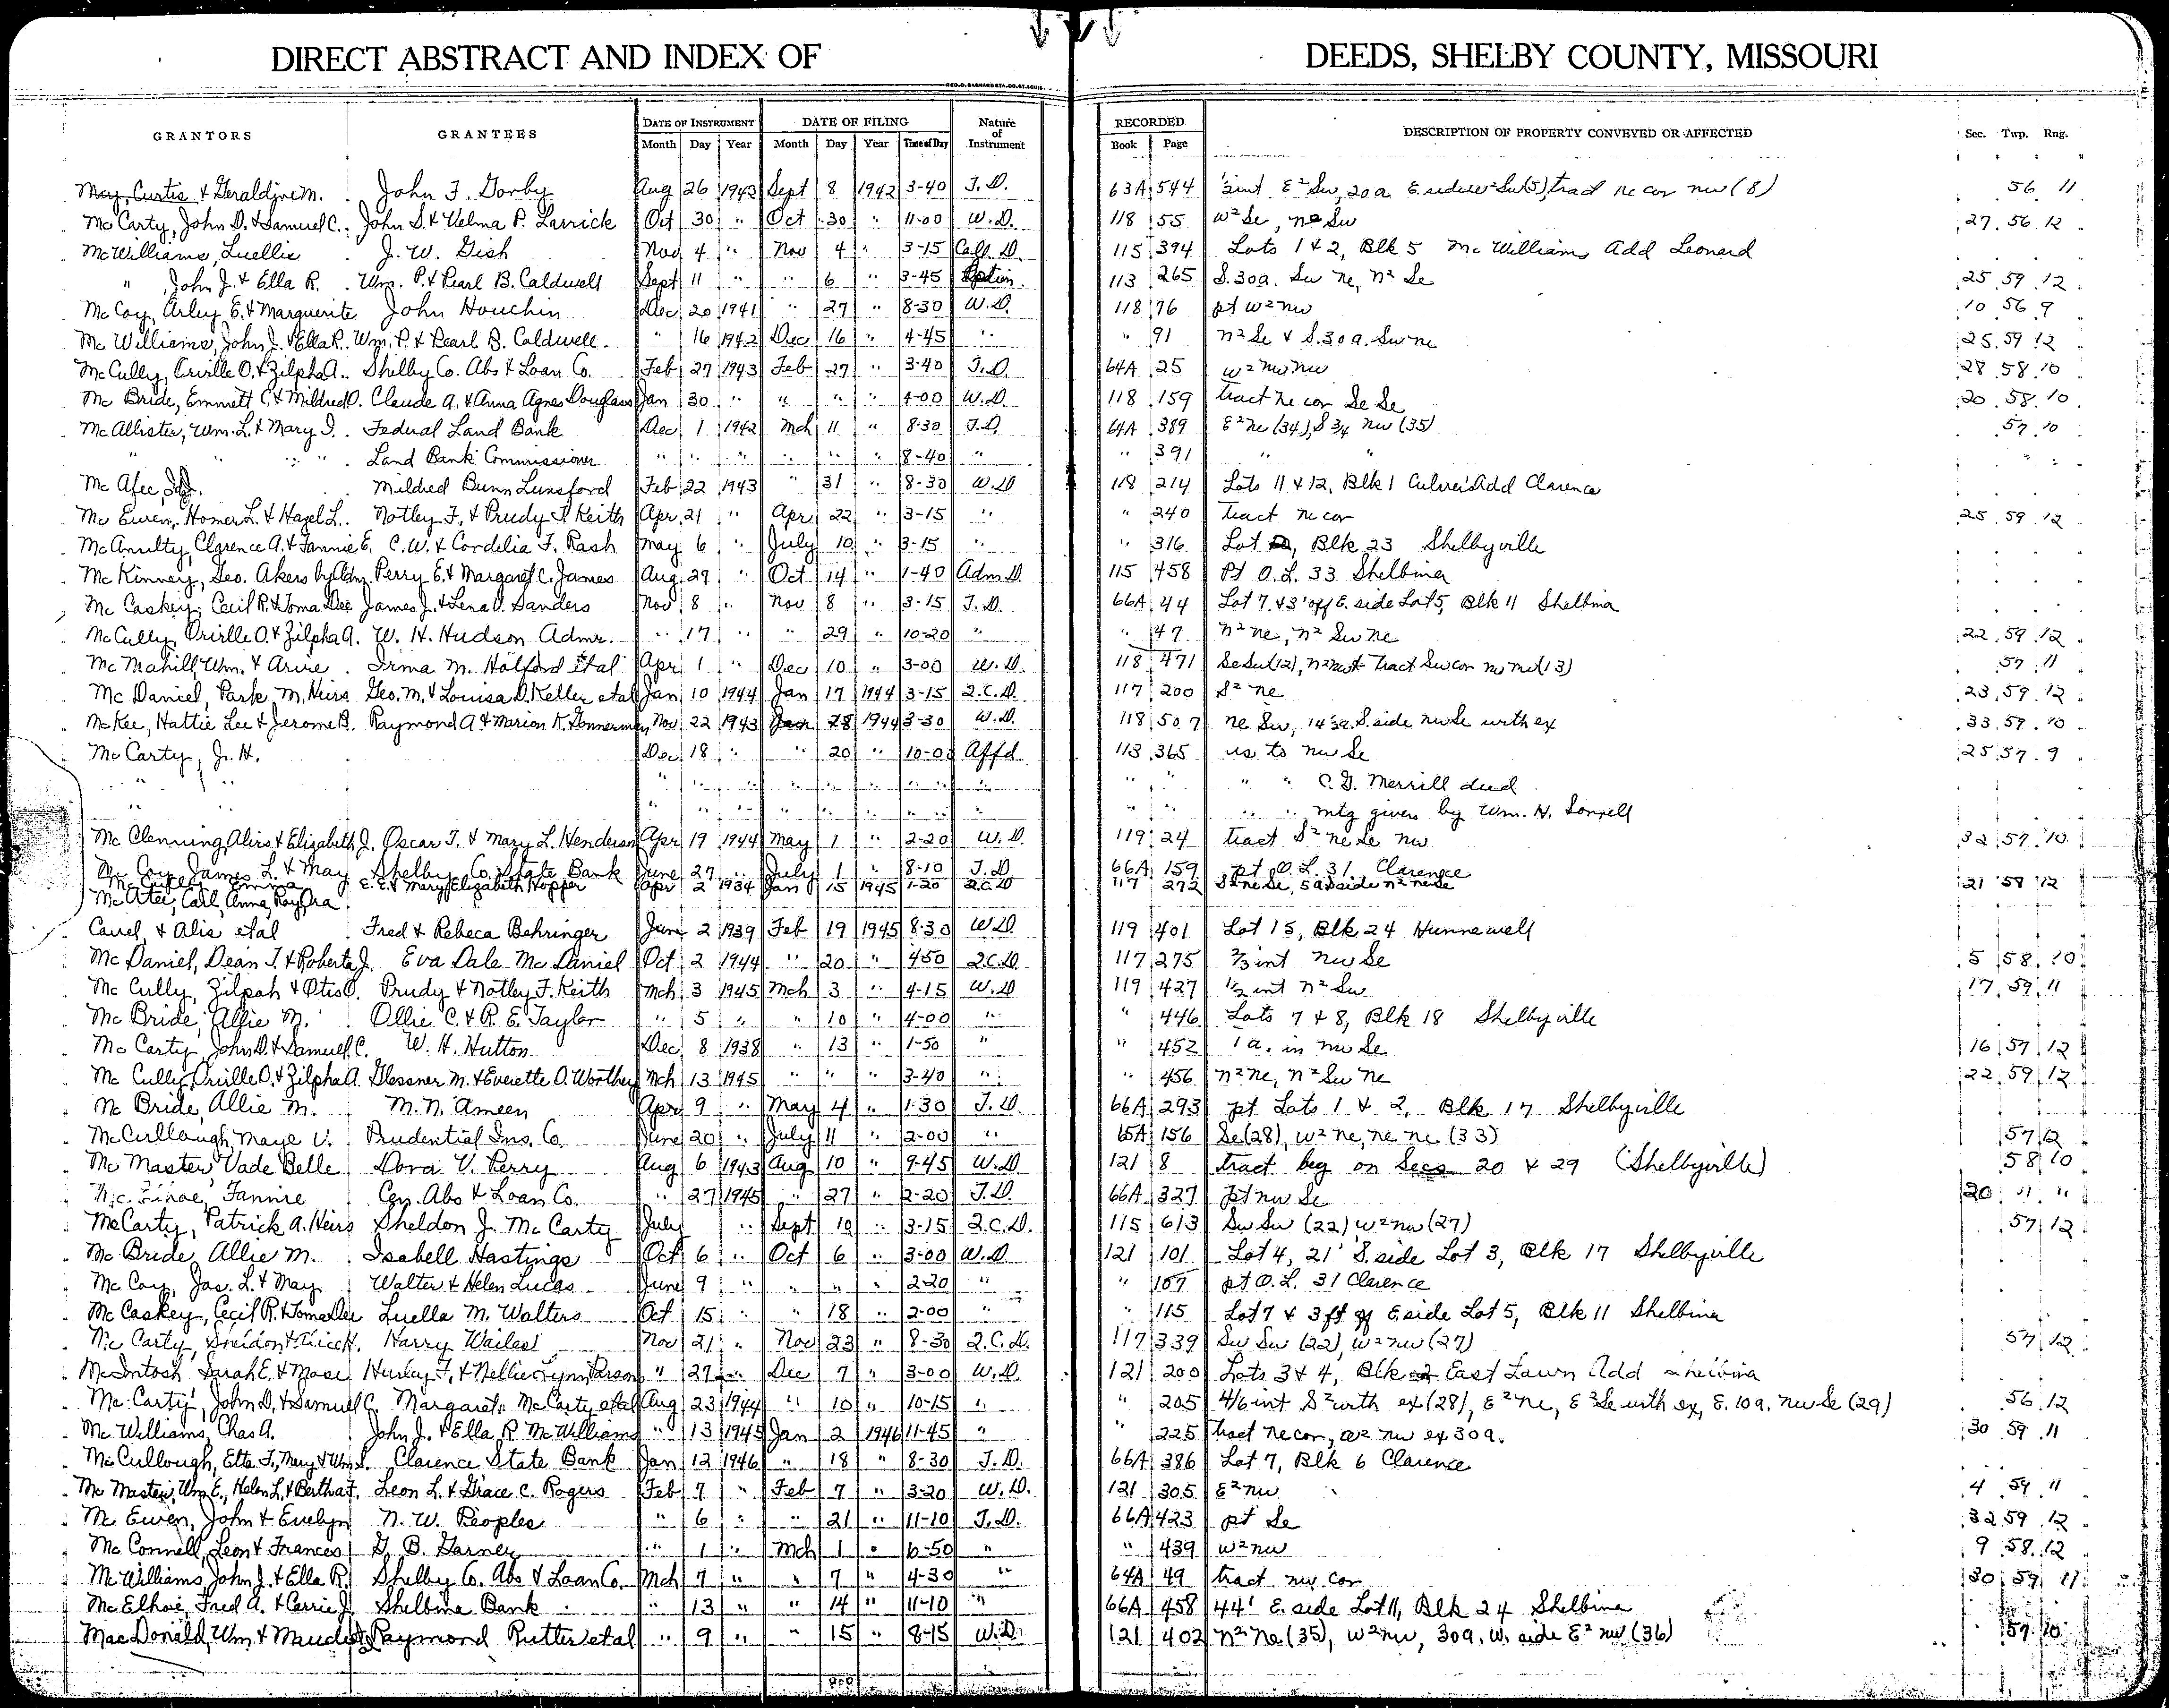 DIRECT ABSTRACT AND INDEX OF DEEDS, SHELBY COUNTY, MISSOURI
GRANTORS GRANTEES DATE OF INSTRUMENT DATE OF FILING Nature of Instrument RECORDED DESCRIPTION OF PROPERTY CONVEYED OR AFFECTED Sec. Twp. Rng.
Month Day Year Month Day Year Time of Day Book Page
May, Curtis & Geraldine M. John F. Gorby Aug 26 1943 Sept 8 1942 3-40 T.D. 63A 544 int E² Sw, 20a E. side w² Sw (5), tract ne cor nw (8) 56 11
Mc Carty, John D. & Samuel C. John S. & Velma P. Larrick Oct 30 " Oct 30 " 11-00 W.D. 118 55 w² Se, ne Sw 27 56 12
McWilliams, Luellie J. W. Gish Nov 4 " Nov 4 " 3-15 Coll. D. 115 394 Lots 1 & 2, Blk 5 McWilliams Add Leonard
" , John J. & Ella R. Wm. P. & Pearl B. Caldwell Sept 11 " " 6 " 3-45 Option 113 265 S. 30a. Sw ne, n² Se 25 59 12
McCoy, Arley E. & Marguerite John Houchin Dec 20 1941 " 27 " 8-30 W.D. 118 76 pt w² nw 10 56 9
Mc Williams, John J. & Ella R. Wm. P. & Pearl B. Caldwell " 16 1942 Dec 16 " 4-45 " " 91 n² Se & S. 30a. Sw ne 25 59 12
McCully, Orville O. & Zilpha A. Shelby Co. Abs & Loan Co. Feb 27 1943 Feb 27 " 3-40 T.D. 64A 25 w² nw nw 28 58 10
Mc Bride, Emmett C. & Mildred O. Claude A. & Anna Agnes Douglass Jan 30 " " " " 4-00 W.D. 118 159 tract ne cor Se Se 20 58 10
McAllister, Wm. L. & Mary I. Federal Land Bank Dec 1 1942 Mch 11 " 8-30 T.D. 64A 389 E² ne (34), S ¾ nw (35) 57 10
" " " " Land Bank Commissioner " " " " " " 8-40 " " 391 " " " "
Mc Afee, Mildred Bunn Lunsford Feb 22 1943 " 31 " 8-30 W.D 118 214 Lots 11 & 12, Blk 1 Culver's Add Clarence
Mc Ewen, Homer L. & Hazel L. Notley F. & Prudy Keith Apr 21 " Apr 22 " 3-15 " " 240 tract ne cor 25 59 12
McAnulty, Clarence A. & Fannie E. C. W. & Cordelia F. Rash May 6 " July 10 " 3-15 " " 316 Lot , Blk 23 Shelbyville
McKinney, Geo. Akers by Adm Perry E. & Margaret C. James Aug 27 " Oct 14 " 1-40 Adm D. 115 458 Pt O.L. 33 Shelbina
McCaskey, Cecil R. & Toma Dee James J. & Lena V. Sanders Nov 8 " Nov 8 " 3-15 T.D. 66A 44 Lot 7 & 3' off E. side Lot 5, Blk 11 Shelbina
McCully, Orville O. & Zilpha A. W. H. Hudson Admr. " 17 " " 29 " 10-20 " " 47 n² ne, n² Sw ne 22 59 12
Mc Mahill, Wm. & Arvie Irma M. Holford etal Apr 1 " Dec 10 " 3-00 W.D. 118 471 Se Sw (12), n² nw & Tract Sw cor nw ne (13) 57 11
McDaniel, Park M. Heirs Geo. M. & Louisa D. Keller etal Jan 10 1944 Jan 17 1944 3-15 Q.C.D. 117 200 S² ne 23 59 12
McKee, Hattie Lee & Jerome B. Raymond A. & Marion K. Gonnerman Nov 22 1943 Jan 28 1944 3-30 W.D. 118 507 ne Sw, 14⅔a. S. side nw Se with ex 33 59 10
McCarty, J. H. Dec 18 " " 20 " 10-00 Affd 113 365 as to nw Se 25 57 9
" " " " " " " " " " " " " " C. G. Merrill deed
" " " " " " " " " " " " " " mtg given by Wm. H. Sonnell
Mc Clenning, Aliro & Elizabeth J. Oscar T. & Mary L. Henderson Apr 19 1944 May 1 " 2-20 W.D. 119 24 tract S² ne Se nw 32 57 10
McCoy, James L. & May Shelby Co. State Bank June 27 " July 1 " 8-10 T.D 66A 159 pt O.L. 31 Clarence
Emma E. E. & Mary Elizabeth Hopper Apr 2 1934 Jan 15 1945 1-20 Q.C.D 117 272 S² ne Se, 5a S side n² ne Se 21 58 12
McAtee, Carl, Anna, Ray, Ora
Carrel, & Alia etal Fred & Rebeca Behringer June 2 1939 Feb 19 1945 8-30 W.D 119 401 Lot 15, Blk 24 Hunnewell
McDaniel, Dean T. & Roberta J. Eva Dale McDaniel Oct 2 1944 " 20 " 4-50 Q.C.D. 117 275 ⅔ int nw Se 5 58 10
McCully, Zilpah & Otis O. Prudy & Notley F. Keith Mch 3 1945 Mch 3 " 4-15 W.D 119 427 ½ int n² Sw 17 59 11
McBride, Allie M. Ollie C. & R. E. Taylor " 5 " " 10 " 4-00 " " 446 Lots 7 & 8, Blk 18 Shelbyville
McCarty, John D. & Samuel C. W. H. Hutton Dec 8 1938 " 13 " 1-50 " " 452 1 a. in nw Se 16 57 12
McCully, Orville O. & Zilpha A. Glessner M. & Everette O. Worthey Mch 13 1945 " " " 3-40 " " 456 n² ne, n² Sw ne 22 59 12
McBride, Allie M. M. N. Ameen Apr 9 " May 4 " 1-30 T.D. 66A 293 pt Lots 1 & 2, Blk 17 Shelbyville
McCullough, Maye V. Prudential Ins. Co. June 20 " July 11 " 2-00 " 65A 156 Se (28), w² ne, ne ne (33) 57 12
McMaster, Vade Belle Dora V. Perry Aug 6 1943 Aug 10 " 9-45 W.D. 121 8 tract beg on Secs 20 & 29 (Shelbyville) 58 10
Fannie Cen. Abs & Loan Co. " 27 1945 " 27 " 2-20 T.D. 66A 327 pt nw Se 20 " "
McCarty, Patrick A. Heirs Sheldon J. McCarty July " Sept 10 " 3-15 Q.C.D. 115 613 Sw Sw (22) w² nw (27) 57 12
McBride, Allie M. Isabell Hastings Oct 6 " Oct 6 " 3-00 W.D. 121 101 Lot 4, 21' S. side Lot 3, Blk 17 Shelbyville
McCoy, Jas. L. & May Walter & Helen Lucas June 9 " " " " 2-20 " " 107 pt O.L. 31 Clarence
McCaskey, Cecil R. & Toma Dee Luella M. Walters Oct 15 " " 18 " 2-00 " " 115 Lot 7 & 3 ft off E side Lot 5, Blk 11 Shelbina
McCarty, Sheldon & Alice H. Harry Wailes Nov 21 " Nov 23 " 8-30 Q.C.D. 117 339 Sw Sw (22), w² nw (27) 57 12
McIntosh, Sarah E. & Mose Hurley F. & Nellie Lynn Parson " 27 " Dec 7 " 3-00 W.D. 121 200 Lots 3 & 4, Blk 2 East Lawn Add Shelbina
McCarty, John D. & Samuel C. Margaret McCarty etal Aug 23 1944 " 10 " 10-15 " " 205 4/6 int S² with ex (28), E² ne, E² Se with ex, E. 10a. nw Se (29) 56 12
McWilliams, Chas A. John J. & Ella R. McWilliams " 13 1945 Jan 2 1946 11-45 " " 225 tract ne cor, w² nw ex 30a. 30 59 11
McCullough, Etta F., Mary & Wm S. Clarence State Bank Jan 12 1946 " 18 " 8-30 T.D. 66A 386 Lot 7, Blk 6 Clarence
McMaster, Wm E., Helen L. & Bertha F. Leon L. & Grace C. Rogers Feb 7 " Feb 7 " 3-20 W.D. 121 305 E² nw 4 59 11
McEwen, John & Evelyn N. W. Peoples " 6 " " 21 " 11-10 T.D. 66A 423 pt Se 32 59 12
McConnell, Leon & Frances G. B. Garner " 1 " Mch 1 " 6-50 " " 439 w² nw 9 58 12
McWilliams, John J. & Ella R. Shelby Co. Abs & Loan Co. Mch 7 " " 7 " 4-30 " 64A 49 tract nw cor 30 59 11
McElhoe, Fred A. & Carrie J. Shelbina Bank " 13 " " 14 " 11-10 " 66A 458 44' E. side Lot 11, Blk 24 Shelbina
MacDonald, Wm & Maude Raymond Rutter etal " 9 " " 15 " 8-15 W.D. 121 402 n² ne (35), w² nw, 30a. W. side E² nw (36) 57 10